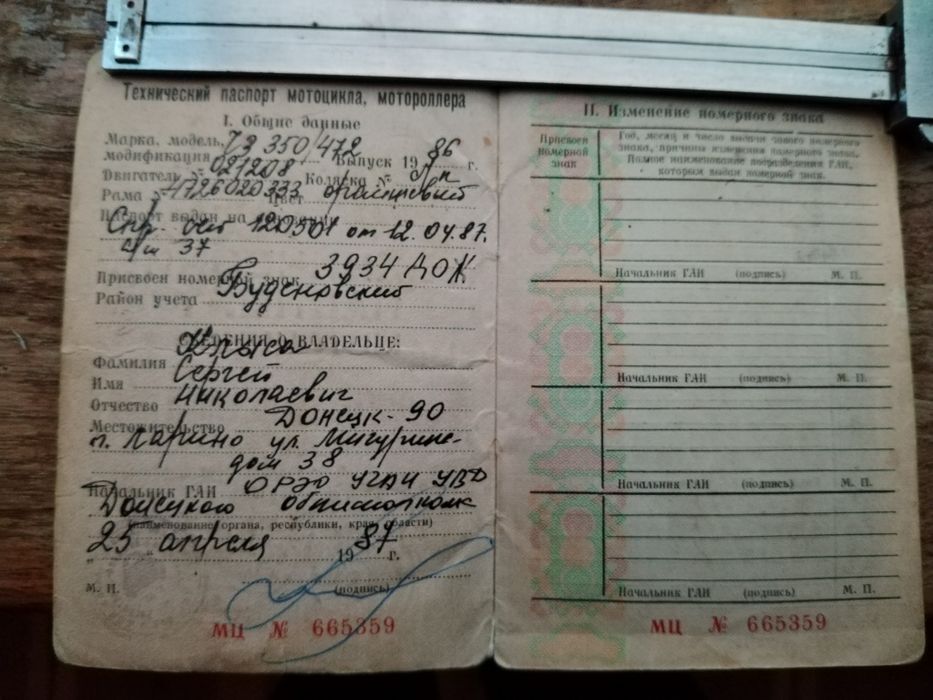 Технический паспорт мотоцикла, мотороллера
I. Общие данные
Марка, модель, ЧЗ 350/472
модификация Выпуск 19 86 г.
Двигатель № 021208 Коляска № б/н
Рама № 4726020333 Цвет
Паспорт выдан на основании
Спр. счёт от 12.04.87.
37
Присвоен номерной знак 3934 ДОЖ
Район учета Буденновский
СВЕДЕНИЯ О ВЛАДЕЛЬЦЕ:
Фамилия
Имя Сергей
Отчество Николаевич
Местожительство Донецк-90
п. Ларино ул.
дом 38
Начальник ГАИ ОРЭО УГАИ УВД
Донецкого
(наименование органа, республики, края, области)
„25" апреля 19 87 г.
М. П. (подпись)
МЦ № 665359
II. Изменение номерного знака
Присвоен номерной знак
Год, месяц и число выдачи нового номерного
знака, причина изменения номерного знака.
Полное наименование подразделения ГАИ,
которым выдан номерной знак.
Начальник ГАИ (подпись) М. П.
Начальник ГАИ (подпись) М. П.
Начальник ГАИ (подпись) М. П.
Начальник ГАИ (подпись) М. П.
МЦ № 665359